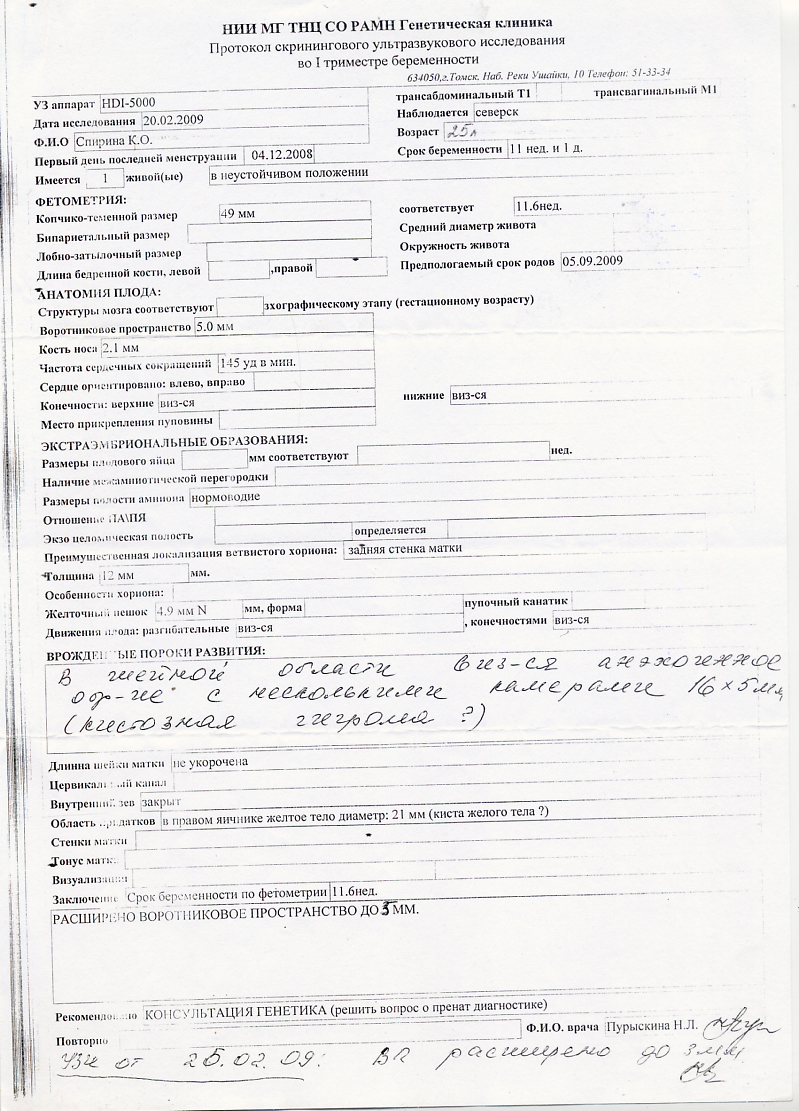 НИИ МГ ТНЦ СО РАМН Генетическая клиника
Протокол скринингового ультразвукового исследования
во I триместре беременности
634050,г.Томск. Наб. Реки Ушайки, 10 Телефон: 51-33-34
УЗ аппарат HDI-5000 трансабдоминальный Т1 трансвагинальный М1
Дата исследования 20.02.2009 Наблюдается северск
Ф.И.О Спирина К.О. Возраст 25л
Первый день последней менструации 04.12.2008 Срок беременности 11 нед. и 1 д.
Имеется 1 живой(ые) в неустойчивом положении
ФЕТОМЕТРИЯ:
Копчико-теменной размер 49 мм соответствует 11.6нед.
Бипариетальный размер Средний диаметр живота
Лобно-затылочный размер Окружность живота
Длина бедренной кости, левой ,правой Предпологаемый срок родов 05.09.2009
АНАТОМИЯ ПЛОДА:
Структуры мозга соответствуют эхографическому этапу (гестационному возрасту)
Воротниковое пространство 5.0 мм
Кость носа 2.1 мм
Частота сердечных сокращений 145 уд в мин.
Сердце ориентировано: влево, вправо
Конечности: верхние виз-ся нижние виз-ся
Место прикрепления пуповины
ЭКСТРАЭМБРИОНАЛЬНЫЕ ОБРАЗОВАНИЯ:
Размеры плодового яйца мм соответствуют нед.
Наличие межамниотической перегородки
Размеры полости амниона нормоводие
Отношение ПА\ПЯ
Экзо целомическая полость определяется
Преимущественная локализация ветвистого хориона: задняя стенка матки
Толщина 12 мм мм.
Особенности хориона:
Желточный мешок 4.9 мм N мм, форма пупочный канатик
Движения плода: разгибательные виз-ся , конечностями виз-ся
ВРОЖДЕННЫЕ ПОРОКИ РАЗВИТИЯ:
В шейной области виз-ся анэхогенное
обр-ие с несколькими камерами 16×5мм
(кистозная гигрома ?)
Длинна шейки матки не укорочена
Цервикальный канал
Внутренний зев закрыт
Область придатков в правом яичнике желтое тело диаметр: 21 мм (киста желого тела ?)
Стенки матки
Тонус матк
Визуализация
Заключение Срок беременности по фетометрии 11.6нед.
РАСШИРЕНО ВОРОТНИКОВОЕ ПРОСТРАНСТВО ДО 5 ММ.
Рекомендовано КОНСУЛЬТАЦИЯ ГЕНЕТИКА (решить вопрос о пренат диагностике)
Повторно Ф.И.О. врача Пурыскина Н.Л.
УЗИ от 26.02.09: ВП расширено до 3мм.